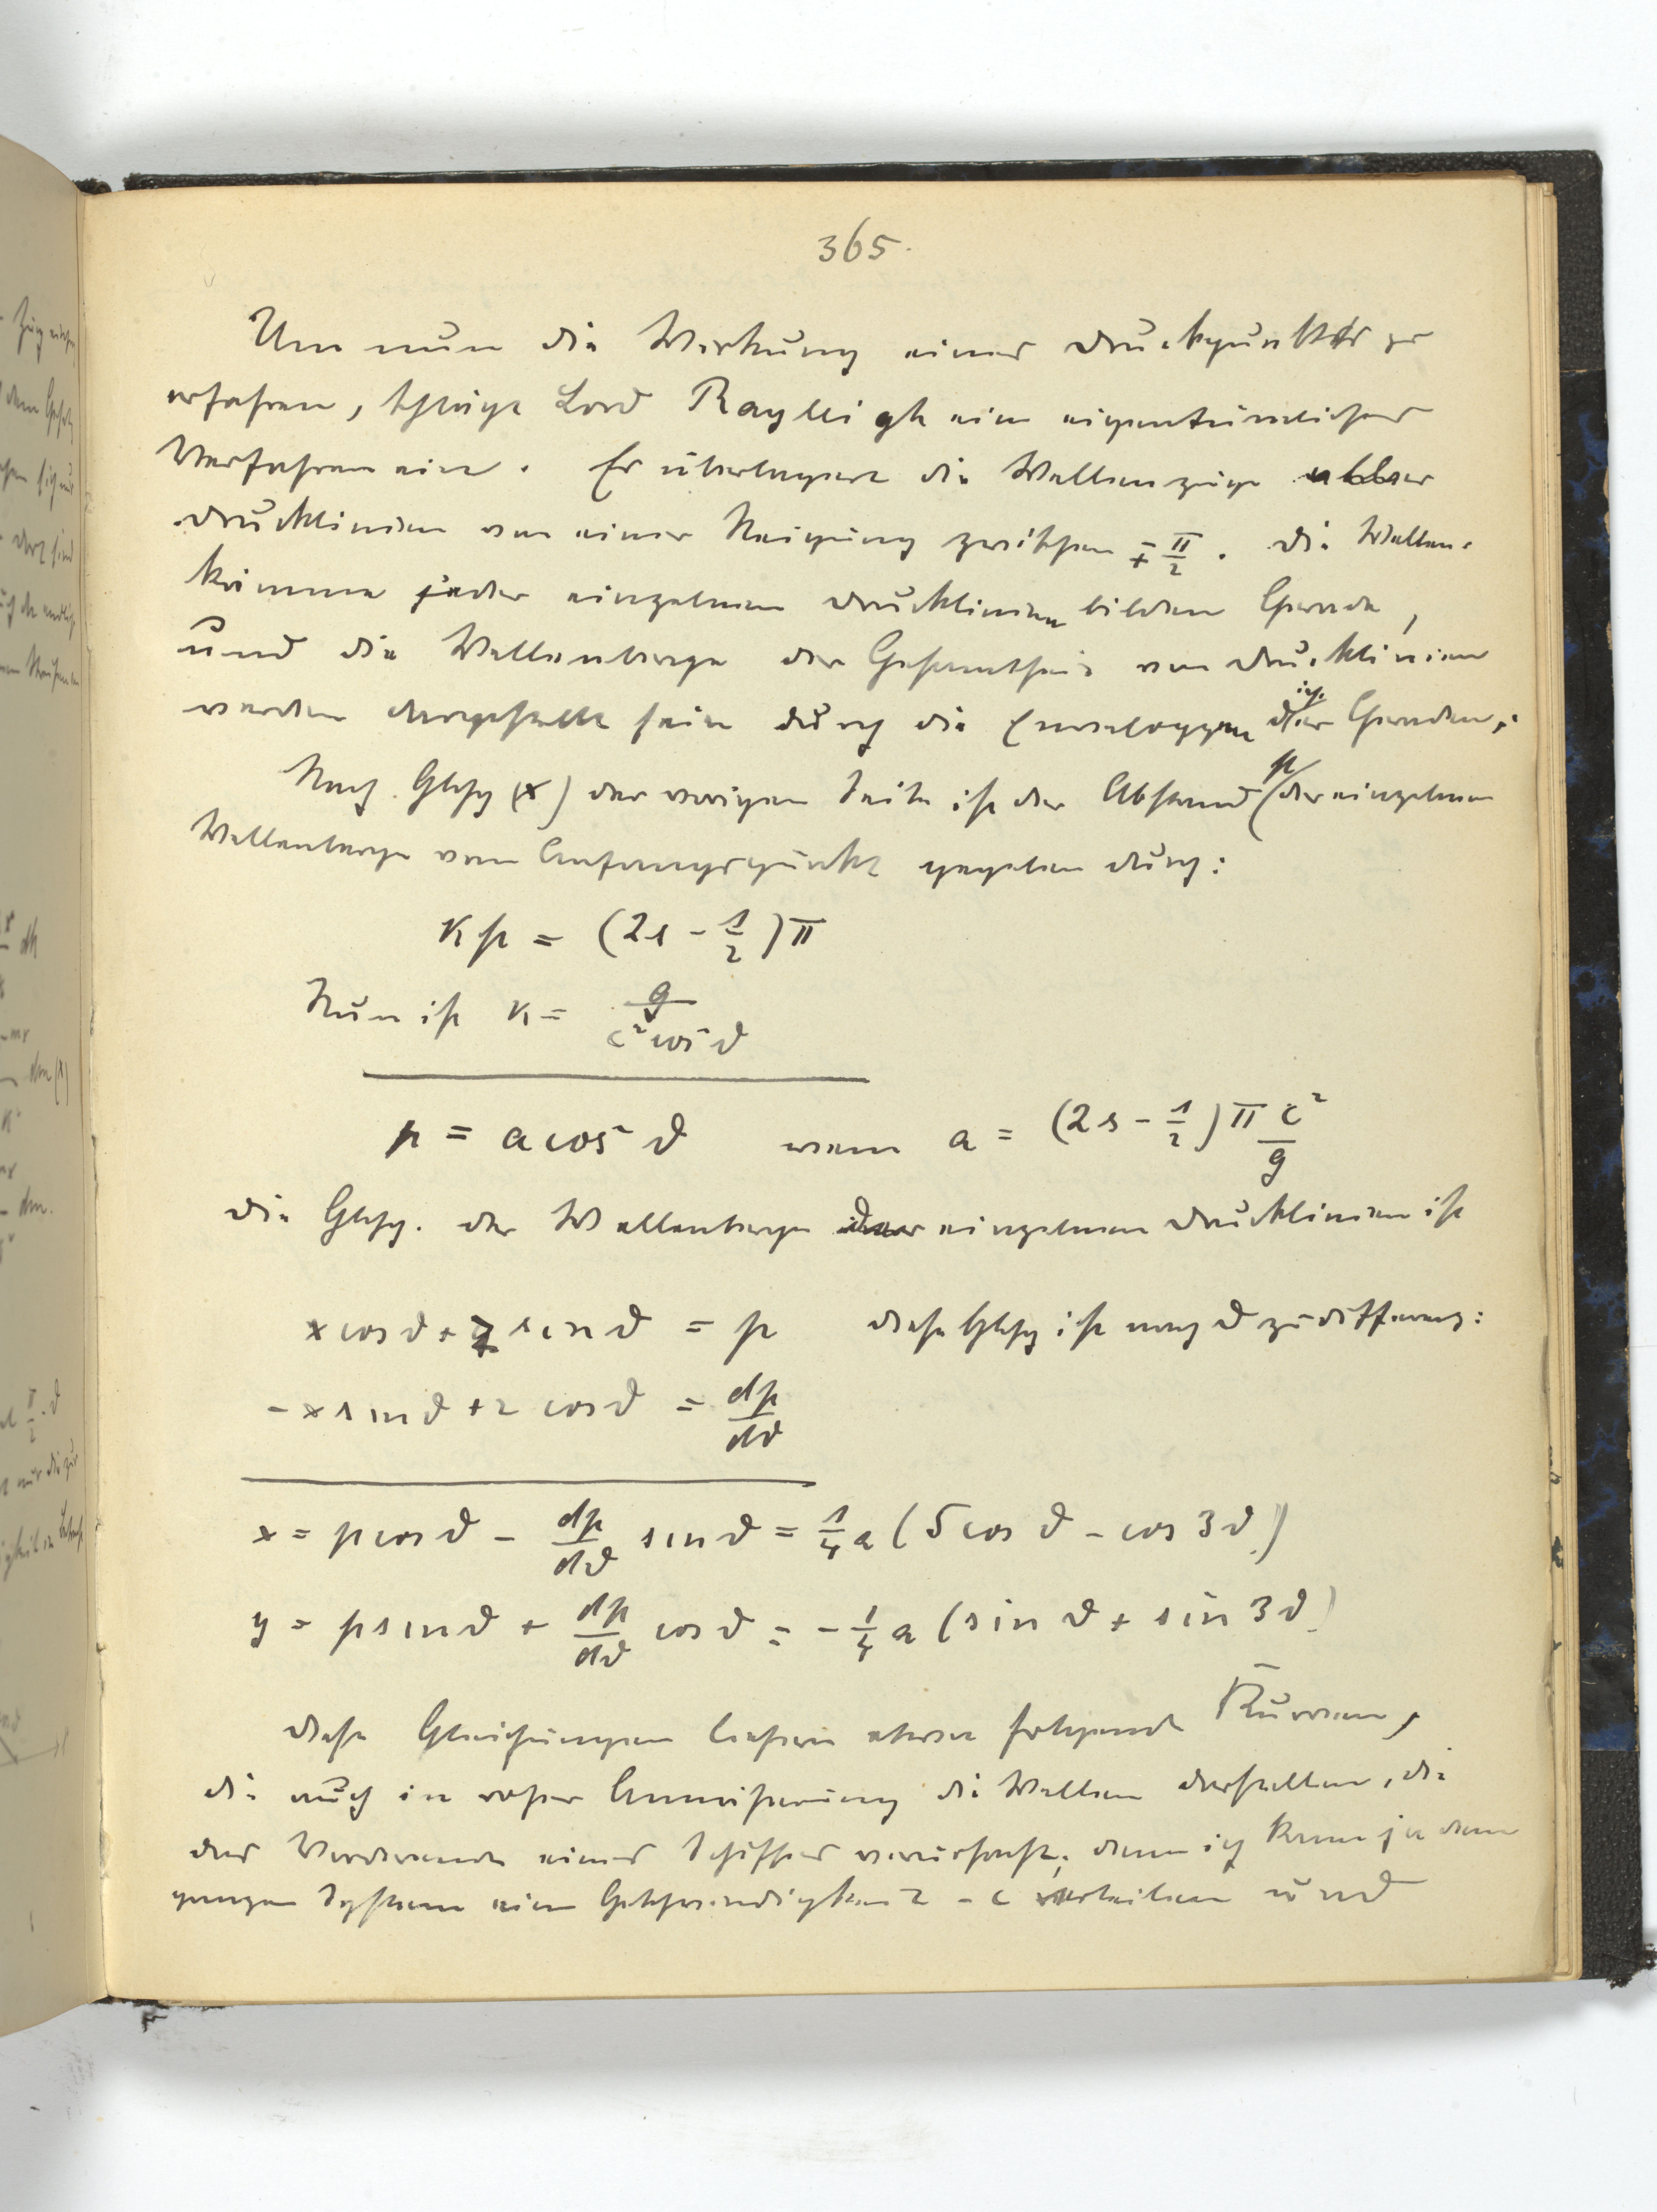 365.
Um nun die Wirkung eines Druckpunktes zu
erfahren, schlägt Lord Raylleigh ein eigentümliches
Verfahren ein. Er überlagert die Wellenzüge aller
Drucklinien von einer Neigung zwischen ∓ π/2. Die Wellen-
kämme jeder einzelnen Drucklinien bilden Gerade,
und die Wellenberge der Gesamtheit von Drucklinien
werden dargestellt sein durch die Enveloppen der Geraden.
Nach Glchg (x) der vorigen Seite ist der Abstand p der einzelnen
Wellenberge vom Anfangspunkt gegeben durch:
κp = (2s - 1/2)π
Nun ist κ = g / c² cos² ϑ
p = a cos² ϑ wenn a = (2s - 1/2) π c²/g
Die Glchg. der Wellenberge der einzelnen Drucklinien ist
x cos ϑ + y sin ϑ = p diese Glchg ist nach ϑ zu differenz:
- x sin ϑ + y cos ϑ = dp/dϑ
x = p cos ϑ - dp/dϑ sin ϑ = 1/4 a (5 cos ϑ - cos 3ϑ)
y = p sin ϑ + dp/dϑ cos ϑ = - 1/4 a (sin ϑ + sin 3ϑ)
Diese Gleichungen liefern etwa folgende Kurven,
die auch in roher Annäherung die Wellen darstellen, die
das Vorderende eines Schiffes verursacht; denn ich kann ja dem
ganzen System eine Geschwindigkeit - c erteilen und